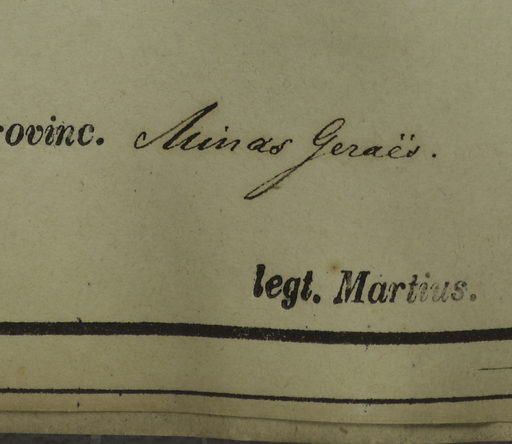 rovinc. Minas Geraës.
legt. Martius.